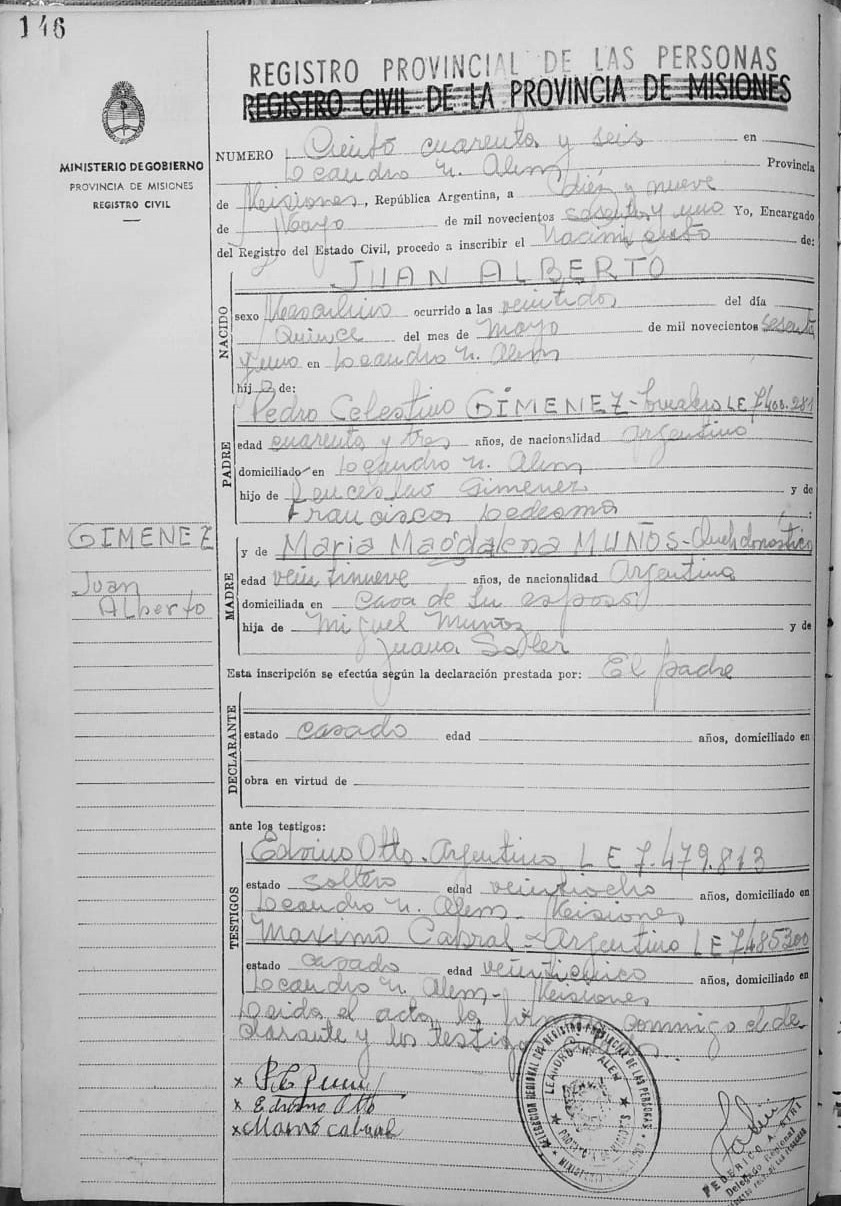 146
REGISTRO PROVINCIAL DE LAS PERSONAS
REGISTRO CIVIL DE LA PROVINCIA DE MISIONES
MINISTERIO DE GOBIERNO
PROVINCIA DE MISIONES
REGISTRO CIVIL
NUMERO Ciento cuarenta y seis en
Leandro N. Alem Provincia
de Misiones, República Argentina, a diez y nueve
de Mayo de mil novecientos sesenta y uno Yo, Encargado
del Registro del Estado Civil, procedo a inscribir el Nacimiento de:
JUAN ALBERTO
NACIDO
sexo Masculino ocurrido a las veintidos del día
Quince del mes de Mayo de mil novecientos sesenta
y uno en Leandro N. Alem
hijo de:
PADRE
Pedro Celestino GIMENEZ - LE 7.400.281
edad cuarenta y tres años, de nacionalidad Argentino
domiciliado en Leandro N. Alem
hijo de Wenceslao Gimenez y de
Francisca Ledesma
GIMENEZ
Juan
Alberto
MADRE
y de Maria Magdalena MUÑOS - Queh domestico
edad veintinueve años, de nacionalidad Argentina
domiciliada en Casa de su esposo
hija de Miguel Muñoz y de
Juana Soler
Esta inscripción se efectúa según la declaración prestada por: El padre
DECLARANTE
estado casado edad años, domiciliado en
obra en virtud de
ante los testigos:
TESTIGOS
Edvino Otto - Argentino LE 7.479.813
estado soltero edad veintiocho años, domiciliado en
Leandro N. Alem - Misiones
Maximo Cabral - Argentino LE 7485300
estado casado edad veinticinco años, domiciliado en
Leandro N. Alem - Misiones
Leida el acta la firman conmigo el de
clarante y los testigos
x
x Edvino Otto
x Maximo Cabral
DELEGACION REGIONAL DEL REGISTRO PROVINCIAL DE LAS PERSONAS
LEANDRO N. ALEM
PROVINCIA DE MISIONES
FEDERICO A.
Delegado Regional